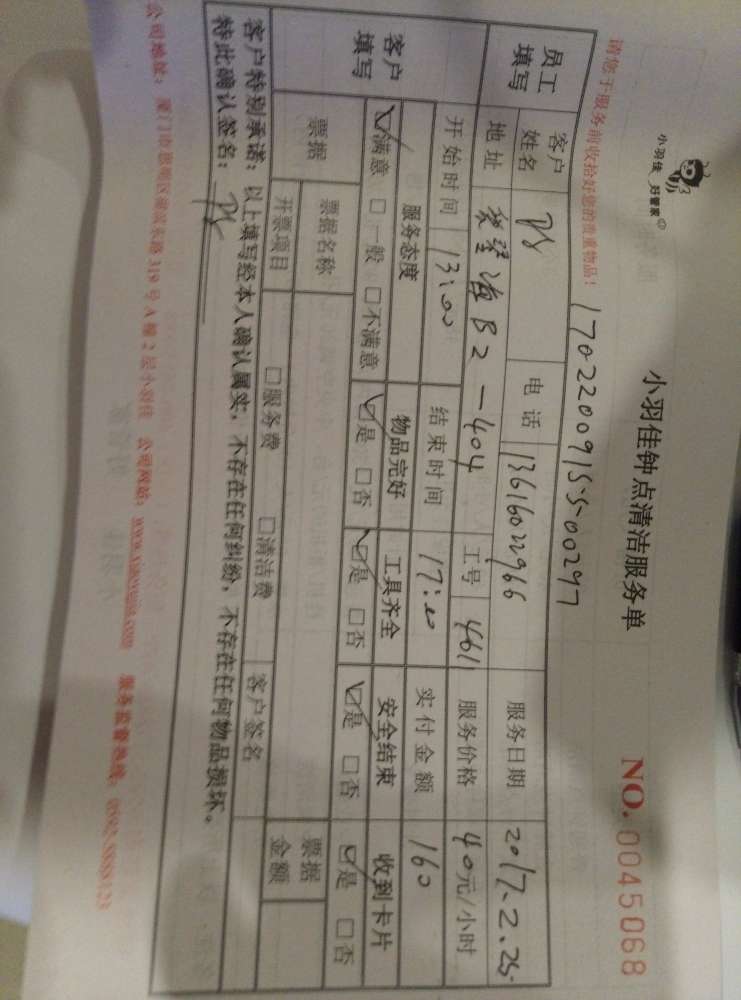 小羽佳 好管家
小羽佳钟点清洁服务单
NO. 0045068
请您于服务前收拾好您的贵重物品！
1702200915-5-00297
员工填写 客户姓名 电话 13616022966 服务日期 2017.2.25
地址 B2-404 工号 4611 服务价格 40元/小时
开始时间 13:00 结束时间 17:00 实付金额 160
客户填写 服务态度 物品完好 工具齐全 安全结束 收到卡片
☑满意 □一般 □不满意 ☑是 □否 ☑是 □否 ☑是 □否 ☑是 □否
票据 票据名称 □服务费 □清洁费 票据金额
开票项目 客户签名
客户特别承诺：以上填写经本人确认属实，不存在任何纠纷，不存在任何物品损坏。
特此确认签名：
公司地址：厦门市思明区 319号A幢2层小羽佳 公司网站： 服务监督热线：